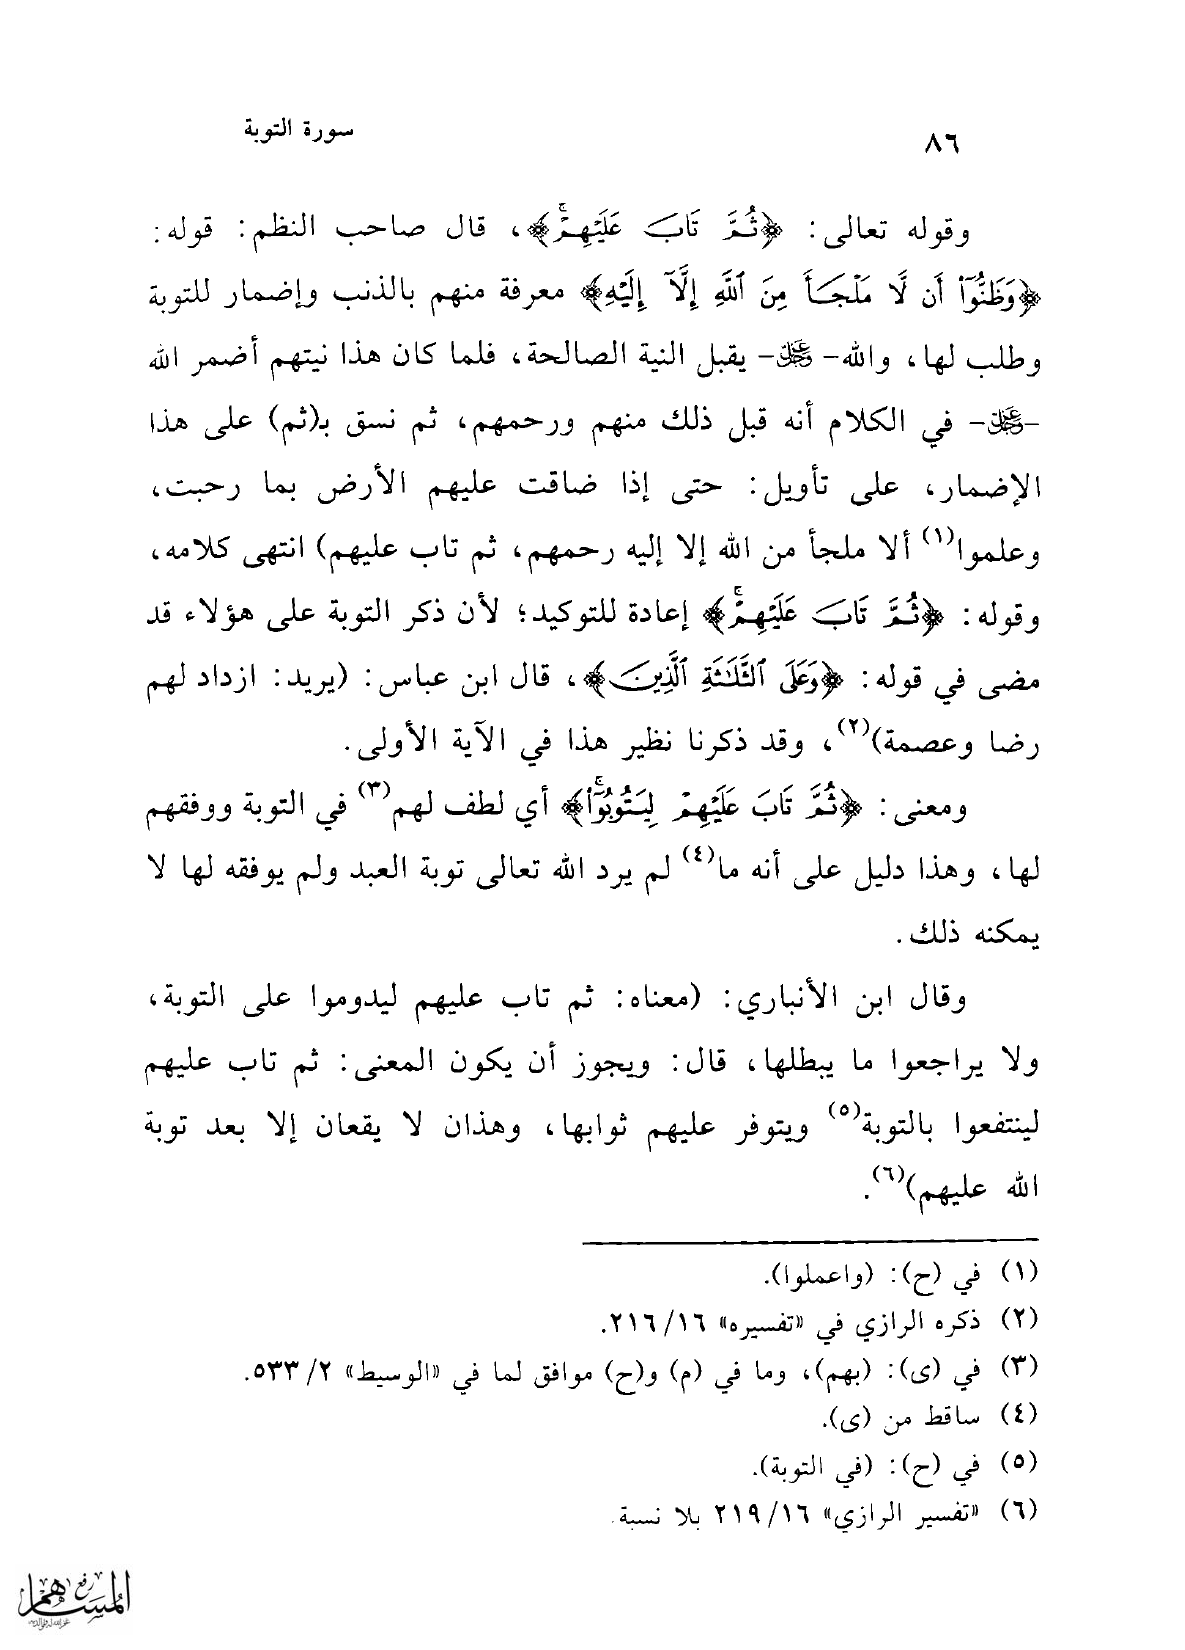 ٨٦
سورة التوبة
وقوله تعالى: ﴿ثُمَّ تَابَ عَلَيْهِمْۚ﴾، قال صاحب النظم: قوله:
﴿وَظَنُّوٓا۟ أَن لَّا مَلْجَأَ مِنَ ٱللَّهِ إِلَّآ إِلَيْهِ﴾ معرفة منهم بالذنب وإضمار للتوبة
وطلب لها، والله- عَزَّ وَجَلَّ- يقبل النية الصالحة، فلما كان هذا نيتهم أضمر الله
-عَزَّ وَجَلَّ- في الكلام أنه قبل ذلك منهم ورحمهم، ثم نسق بـ(ثم) على هذا
الإضمار، على تأويل: حتى إذا ضاقت عليهم الأرض بما رحبت،
وعلموا(١) ألا ملجأ من الله إلا إليه رحمهم، ثم تاب عليهم) انتهى كلامه،
وقوله: ﴿ثُمَّ تَابَ عَلَيْهِمْۚ﴾ إعادة للتوكيد؛ لأن ذكر التوبة على هؤلاء قد
مضى في قوله: ﴿وَعَلَى ٱلثَّلَـٰثَةِ ٱلَّذِينَ﴾، قال ابن عباس: (يريد: ازداد لهم
رضا وعصمة)(٢)، وقد ذكرنا نظير هذا في الآية الأولى.
ومعنى: ﴿ثُمَّ تَابَ عَلَيْهِمْ لِيَتُوبُوٓا۟ۚ﴾ أي لطف لهم(٣) في التوبة ووفقهم
لها، وهذا دليل على أنه ما(٤) لم يرد الله تعالى توبة العبد ولم يوفقه لها لا
يمكنه ذلك.
وقال ابن الأنباري: (معناه: ثم تاب عليهم ليدوموا على التوبة،
ولا يراجعوا ما يبطلها، قال: ويجوز أن يكون المعنى: ثم تاب عليهم
لينتفعوا بالتوبة(٥) ويتوفر عليهم ثوابها، وهذان لا يقعان إلا بعد توبة
الله عليهم)(٦).
(١) في (ح): (واعملوا).
(٢) ذكره الرازي في «تفسيره» ١٦/ ٢١٦.
(٣) في (ى): (بهم)، وما في (م) و(ح) موافق لما في «الوسيط» ٢/ ٥٣٣.
(٤) ساقط من (ى).
(٥) في (ح): (في التوبة).
(٦) «تفسير الرازي» ١٦/ ٢١٩ بلا نسبة.
رفع
المساهم